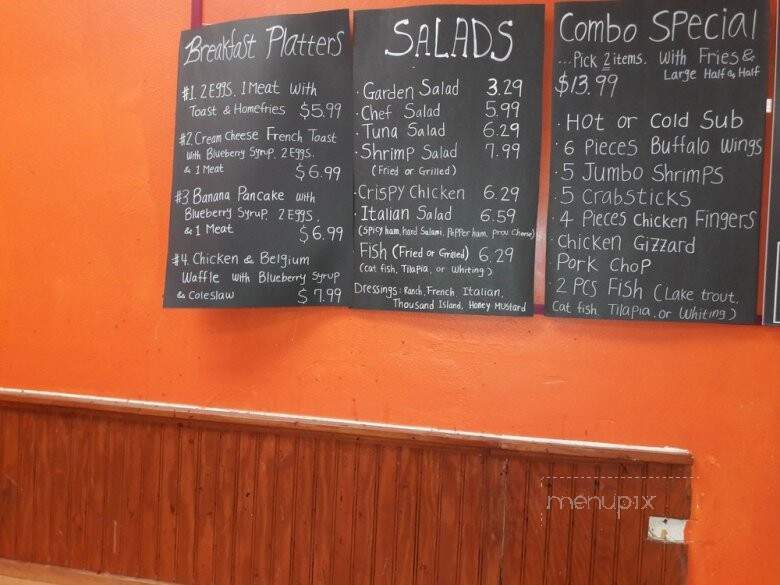 Breakfast Platters
#1. 2 Eggs, 1 Meat with
Toast & Homefries $5.99
#2. Cream Cheese French Toast
with Blueberry Syrup, 2 Eggs,
& 1 Meat $6.99
#3 Banana Pancake with
Blueberry Syrup, 2 Eggs,
& 1 Meat $6.99
#4. Chicken & Belgium
Waffle with Blueberry Syrup
& Coleslaw $7.99
SALADS
· Garden Salad 3.29
· Chef Salad 5.99
· Tuna Salad 6.29
· Shrimp Salad 7.99
(Fried or Grilled)
· Crispy Chicken 6.29
· Italian Salad 6.59
(Spicy ham, hard Salami, Pepper ham, prov. Cheese)
Fish (Fried or Grilled) 6.29
(Cat fish, Tilapia, or Whiting)
Dressings: Ranch, French Italian,
Thousand Island, Honey Mustard
Combo Special
...Pick 2 items. With Fries &
Large Half & Half
$13.99
· Hot or Cold Sub
· 6 Pieces Buffalo Wings
· 5 Jumbo Shrimps
· 5 Crabsticks
· 4 Pieces Chicken Fingers
· Chicken Gizzard
Pork Chop
· 2 Pcs Fish (Lake trout,
Cat fish, Tilapia, or Whiting)
menupix